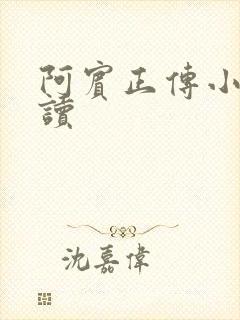 阿賓正傳小
讀
沈嘉偉